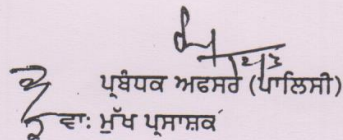 ਪ੍ਰਬੰਧਕ ਅਫਸਰ (ਪਾਲਿਸੀ)
ਵਾ: ਮੁੱਖ ਪ੍ਰਸਾਸ਼ਕ